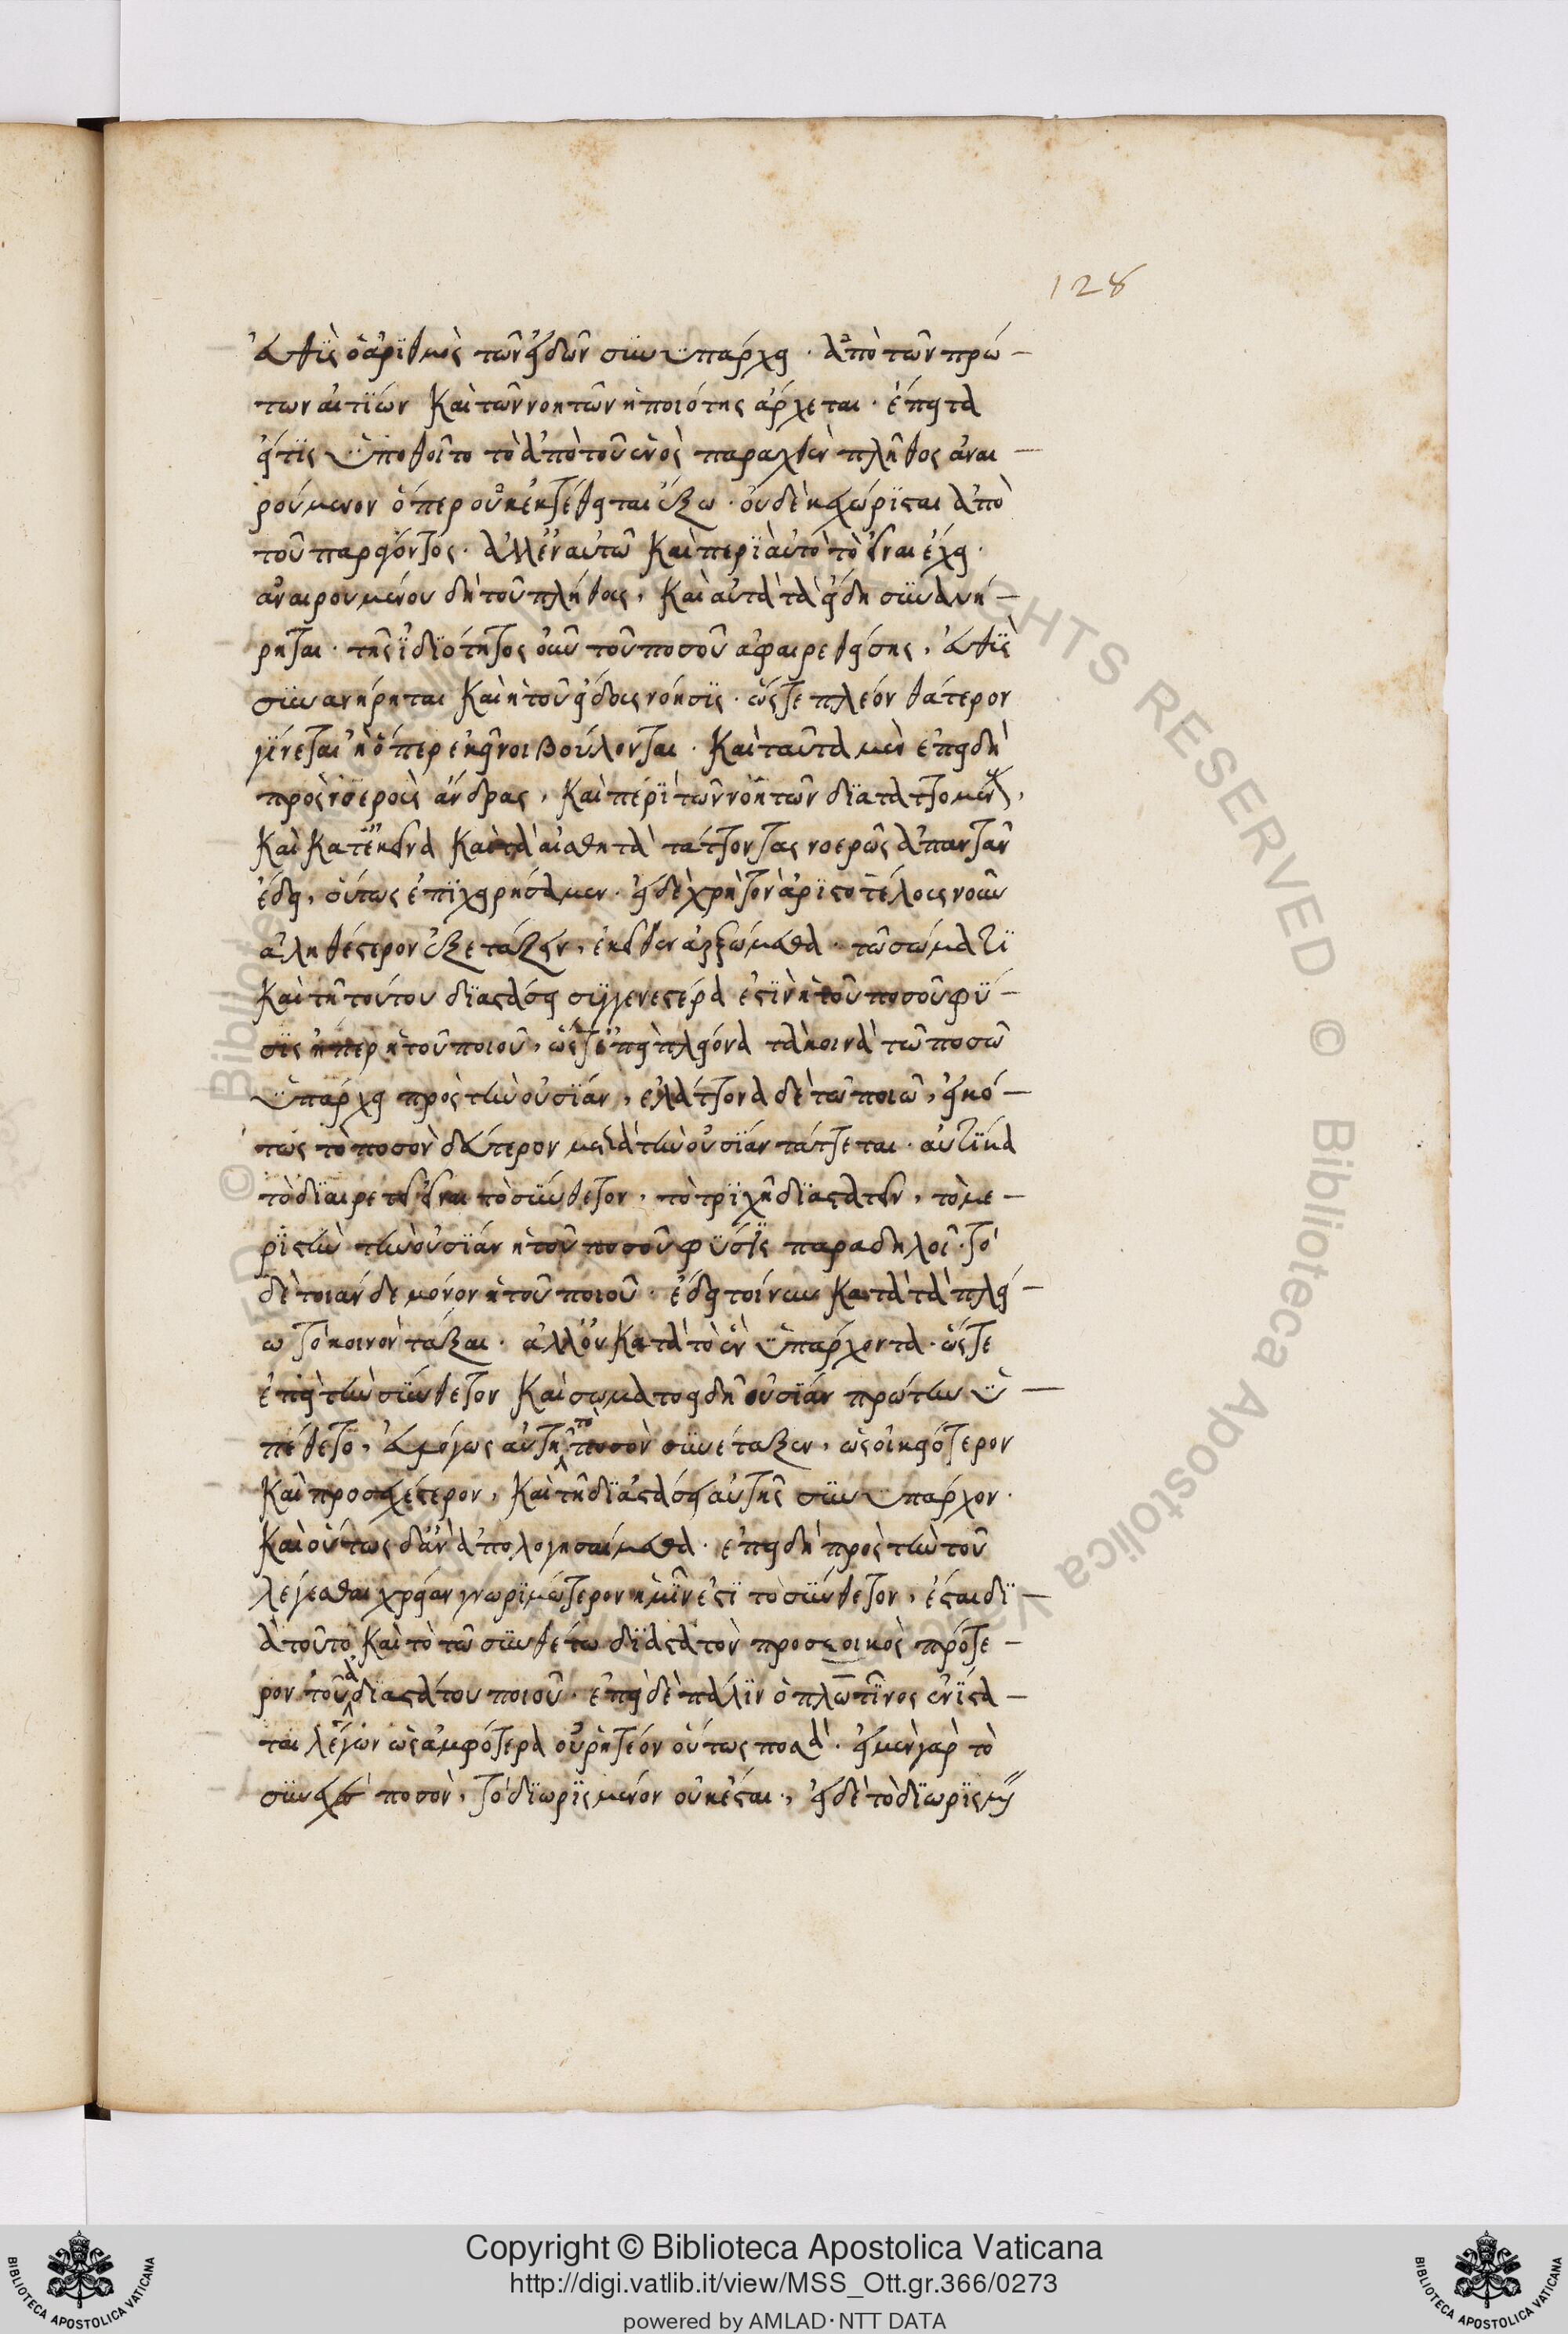 128
εὐθὺς ὁ ἀριθμὸς τῶν εἰδῶν συνυπάρχει · ἀπὸ τῶν πρώ-
των αἰτίων καὶ τῶν νοητῶν ἡ ποιότης ἄρχεται · ἔπειτα
εἴ τις ὑπόθοιτο τὸ ἀπὸ τοῦ ἑνὸς παραχθὲν πλῆθος ἀναι-
ρούμενον ὅπερ οὐκ ἐκτέθειται ἔξω · οὐδὲ κεχώρισται ἀπὸ
τοῦ παράγοντος · ἀλλ' ἐν αὐτῷ καὶ περὶ αὐτὸ τὸ εἶναι ἔχει ·
ἀναιρουμένου δὴ τοῦ πλήθους, καὶ αὐτὰ τὰ εἴδη συνανή-
ρηται · τῆς ἰδιότητος οὖν τοῦ ποσοῦ ἀφαιρεθείσης, εὐθὺς
συνανῄρηται καὶ ἡ τοῦ εἴδους νόησις · ὥστε πλέον θάτερον
γίνεται ἢ ὅπερ ἐκεῖνοι βούλονται · καὶ ταῦτα μὲν ἐπειδὴ
πρὸς νοεροὺς ἄνδρας, καὶ περὶ τῶν νοητῶν διαταττομένους,
καὶ κατ' ἐκεῖνα καὶ τὰ αἰσθητὰ τάττοντας νοερῶς ἀπαντᾶν
ἔδει, οὕτως ἐπιχειρήσαμεν · εἰ δὲ χρὴ τὸν ἀριστοτέλους νοῦν
ἀληθέστερον ἐξετάζειν, ἐκεῖθεν ἀρξώμεθα · τῷ σώματι
καὶ τῇ τούτου διαστάσει συγγενεστέρα ἐστὶν ἡ τοῦ ποσοῦ φύ-
σις ἤπερ ἡ τοῦ ποιοῦ, ὥστ' ἐπεὶ πλείονα τὰ κοινὰ τῷ ποσῷ
ὑπάρχει πρὸς τὴν οὐσίαν, ἐλάττονα δὲ τῷ ποιῷ, εἰκό-
τως τὸ ποσὸν δεύτερον μετὰ τὴν οὐσίαν τάττεται · αὐτίκα
τὸ διαιρετὸν εἶναι τὸ σύνθετον, τὸ τριχῆ διαστατὸν, τὸ με-
ριστὴν τὴν οὐσίαν ἡ τοῦ ποσοῦ φύσις παραδηλοῖ · τὸ
δὲ τοιάνδε μόνον ἡ τοῦ ποιοῦ · ἔδει τοίνυν κατὰ τὰ πλεί-
ω τὸ κοινὸν τάξαι · ἀλλ' οὐ κατὰ τὸ ἓν ὑπάρχοντα · ὥστε
ἐπεὶ τὴν σύνθετον καὶ σωματοειδῆ οὐσίαν πρώτην ὑ-
πέθετο, εὐλόγως αὐτῇ τὸ ποσὸν συνέταξεν, ὡς οἰκειότερον
καὶ προσεχέστερον, καὶ τῇ διαστάσει αὐτῆς συνυπάρχον ·
καὶ οὕτως δ' ἂν ἀπολογησαίμεθα · ἐπειδὴ πρὸς τὴν τοῦ
λέγεσθαι χρείαν γνωριμώτερον ἡμῖν ἐστι τὸ σύνθετον, ἔσται δι-
ὰ τοῦτο καὶ τὸ τῷ συνθέτῳ διαστατὸν προσεοικὸς πρότε-
ρον τοῦ ἀδιαστάτου ποιοῦ · ἐπεὶ δὲ πάλιν ὁ πλωτῖνος ἐνίστα-
ται λέγων ὡς ἀμφότερα οὐ ῥητέον οὕτως ποσά · εἰ μὲν γὰρ τὸ
συνεχὲς ποσὸν, τὸ διωρισμένον οὐκ ἔσται, εἰ δὲ τὸ διωρισμένον
Copyright © Biblioteca Apostolica Vaticana
http://digi.vatlib.it/view/MSS_Ott.gr.366/0273
powered by AMLAD·NTT DATA